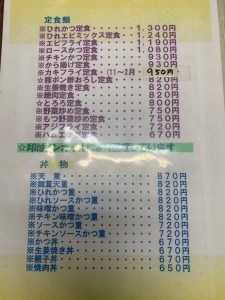 定食類
※ひれかつ定食・・・・・・・1,300円
※ひれエビミックス定食・・・1,240円
※エビフライ定食・・・・・・1,190円
※ロースかつ定食・・・・・・1,080円
※チキンかつ定食・・・・・・930円
※から揚げ定食・・・・・・・930円
※カキフライ定食・(11〜2月・950円・
☆豚ポン酢おろし定食・・・・820円
※生姜焼き定食・・・・・・・820円
※焼肉定食・・・・・・・・・820円
☆とろろ定食・・・・・・・・
※野菜炒め定食・・・・・・・
※もつ野菜炒め定食・・・・・
※アジフライ定食・・・・・・720円
※ハムエッグ定食・・・・・・670円
☆印は
丼物
※天重・・・・・・・・・・・870円
※舞茸天重・・・・・・・・・820円
※ひれかつ重・・・・・・・・820円
※ひれソースかつ重・・・・・820円
※味噌かつ重・・・・・・・・820円
※チキン味噌かつ重・・・・・820円
※ソースかつ重・・・・・・・720円
※チキンソースかつ重・・・・720円
※かつ丼・・・・・・・・・・670円
※生姜焼き丼・・・・・・・・670円
※親子丼・・・・・・・・・・670円
※焼肉丼・・・・・・・・・・650円